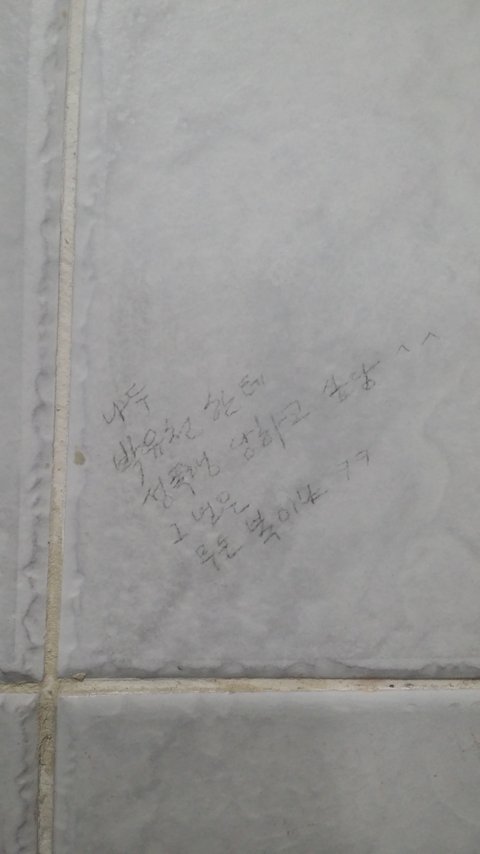 나두
박유천 한테
성폭행 당하고 싶당 ^^
그 년은
무슨 복이냐 ㅋㅋ